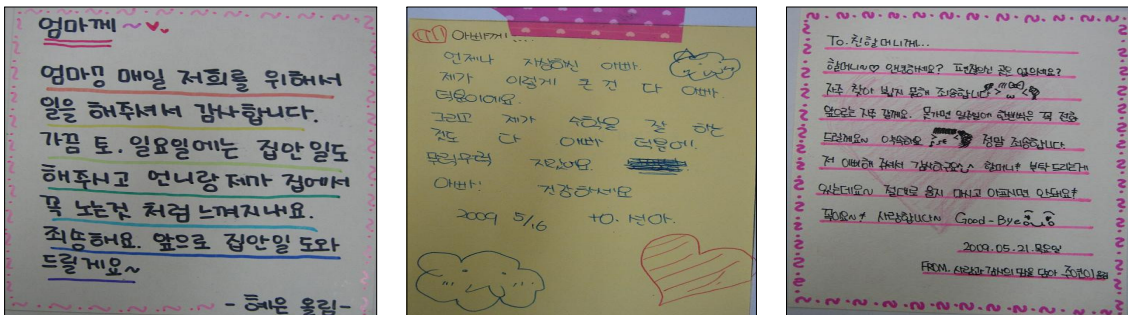 엄마께~
엄마!! 매일 저희를 위해서
일을 해주셔서 감사합니다.
가끔 토.일요일에는 집안일도
해주시고 언니랑 저가 집에서
푹 노는것 처럼 느껴지내요.
죄송해요. 앞으로 집안일 도와
드릴게요~
- 혜은 올림-
아빠께....
언제나 자상하신 아빠.
제가 이렇게 큰건 다 아빠.
덕분이에요.
그리고 제가 수학을 잘 하는
것도 다 아빠 덕분이!.
무럭무럭 자랐어요.
아빠! 건강하세요
2009 5/16 to. 선아.
To. 친할머니께...
할머니~♡ 안녕하세요? 편찮으신 곳은 없으세요?
자주 찾아 뵙지 못해 죄송합니다
앞으로는 자주 갈께요. 못가면 일주일에 한번씩은 꼭 전화
드릴께요~ 아셨죠? 정말 죄송합니다.
저 이뻐해 주셔서 감사하구요 할머니! 부탁드릴게
있는데요~ 절대로 울지 마시고 아프시면 안돼요!
꼭이요~! 사랑합니다~ Good-Bye
2009.05.21.목요일
FROM. 사랑과 감사의 맘을 담아